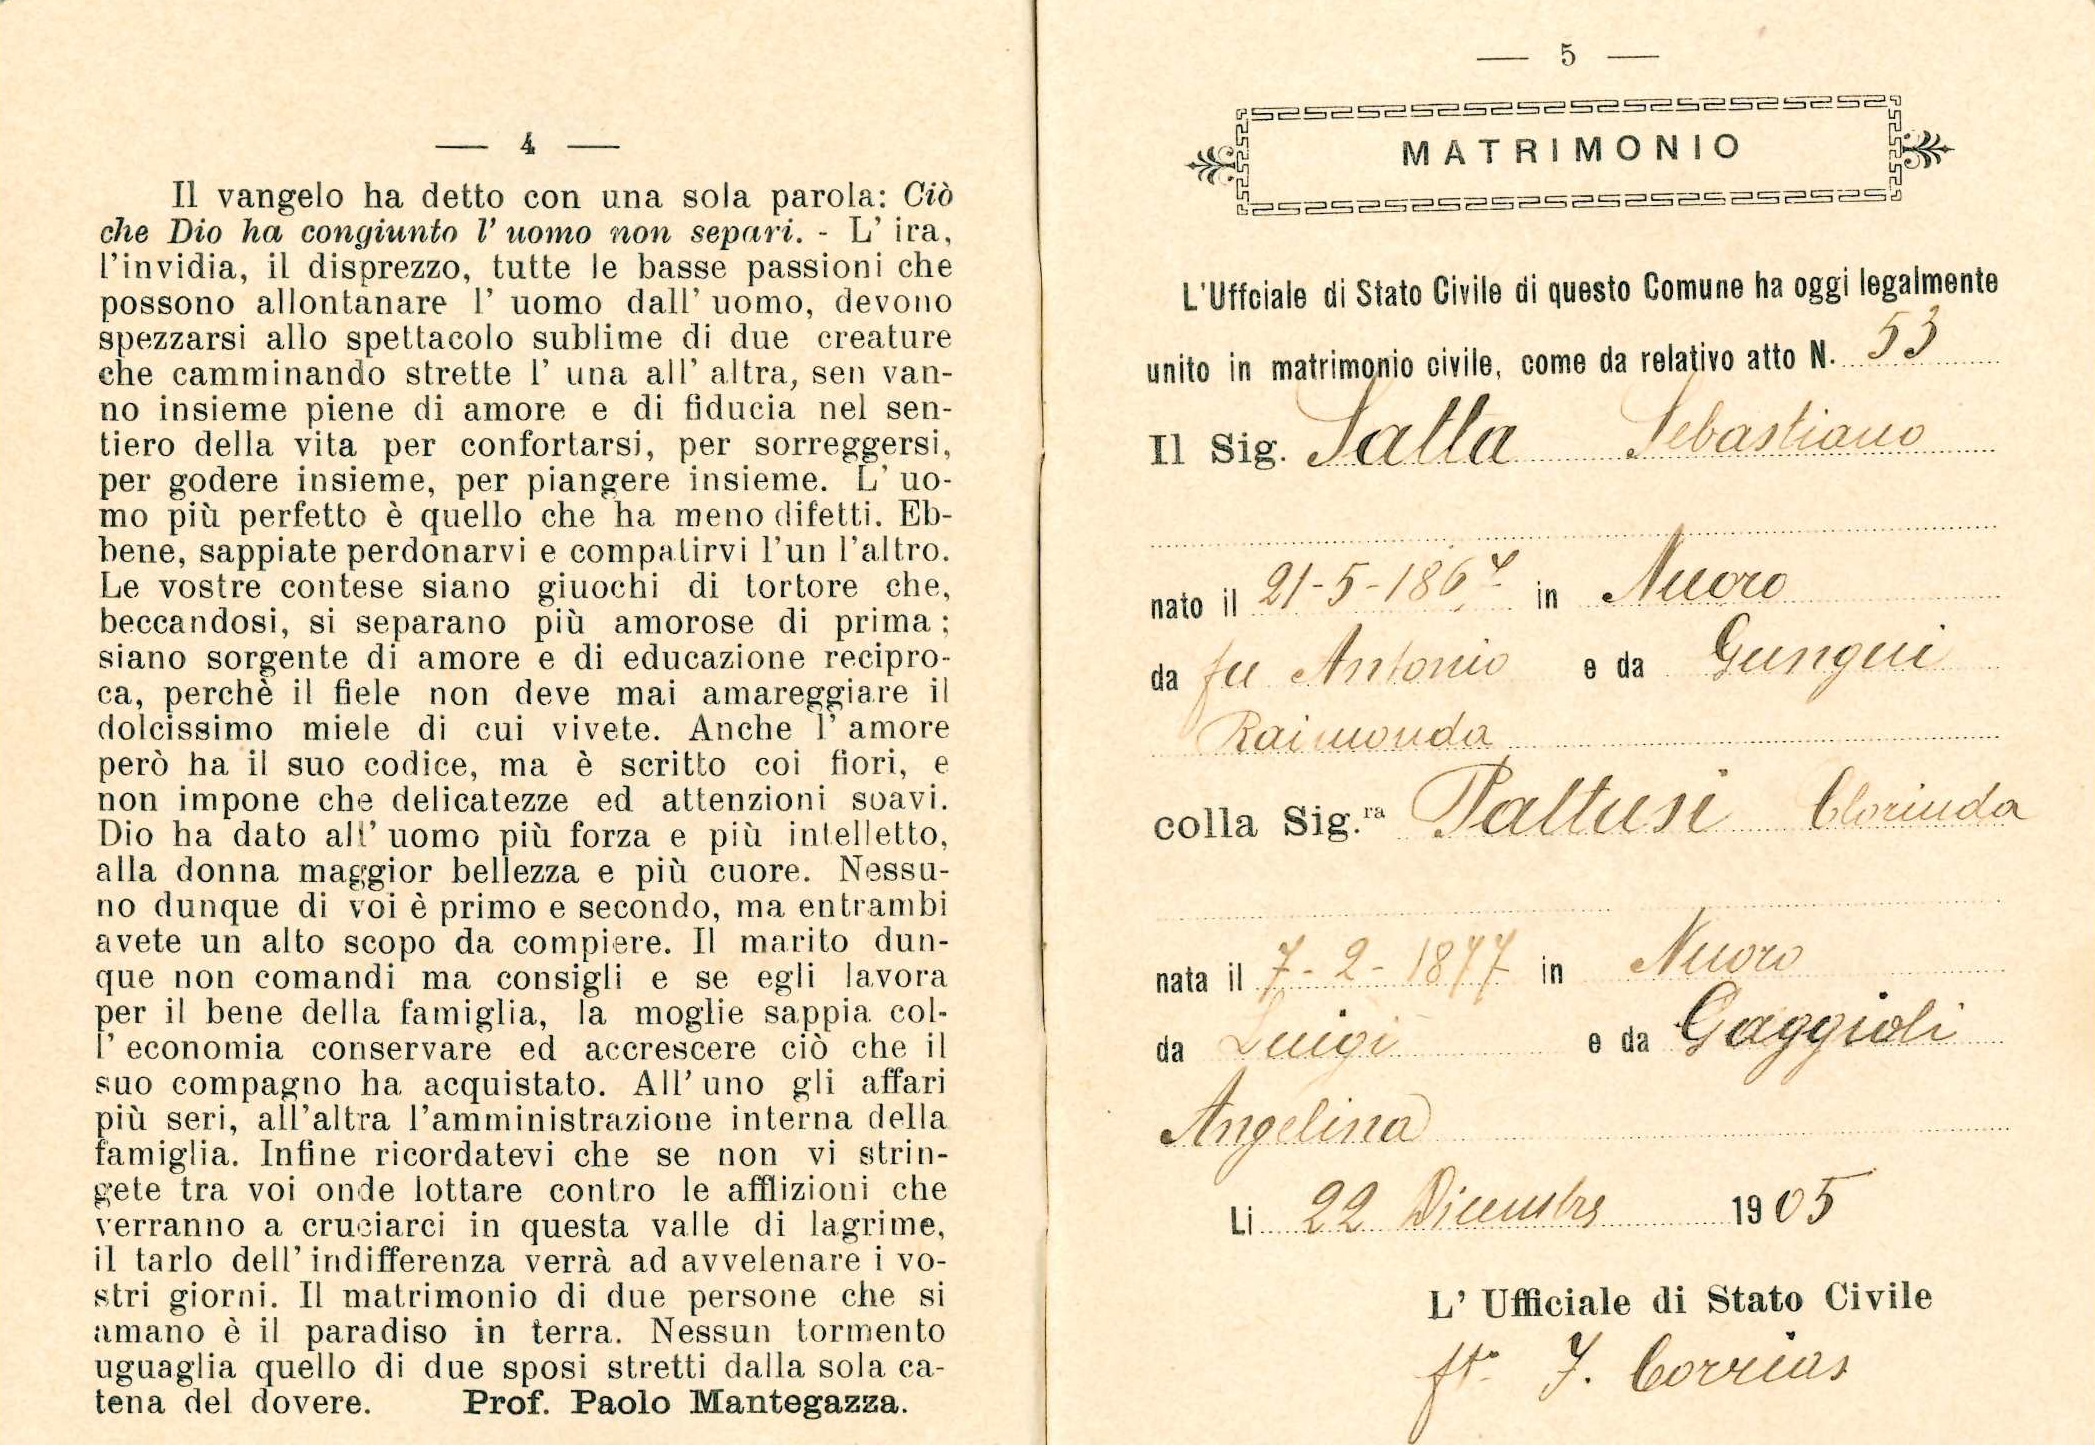 — 4 —
Il vangelo ha detto con una sola parola: Ciò
che Dio ha congiunto l' uomo non separi. - L' ira,
l'invidia, il disprezzo, tutte le basse passioni che
possono allontanare l' uomo dall' uomo, devono
spezzarsi allo spettacolo sublime di due creature
che camminando strette l' una all' altra, sen van-
no insieme piene di amore e di fiducia nel sen-
tiero della vita per confortarsi, per sorreggersi,
per godere insieme, per piangere insieme. L' uo-
mo più perfetto è quello che ha meno difetti. Eb-
bene, sappiate perdonarvi e compatirvi l'un l'altro.
Le vostre contese siano giuochi di tortore che,
beccandosi, si separano più amorose di prima;
siano sorgente di amore e di educazione recipro-
ca, perchè il fiele non deve mai amareggiare il
dolcissimo miele di cui vivete. Anche l' amore
però ha il suo codice, ma è scritto coi fiori, e
non impone che delicatezze ed attenzioni soavi.
Dio ha dato all' uomo più forza e più intelletto,
alla donna maggior bellezza e più cuore. Nessu-
no dunque di voi è primo e secondo, ma entrambi
avete un alto scopo da compiere. Il marito dun-
que non comandi ma consigli e se egli lavora
per il bene della famiglia, la moglie sappia col-
l' economia conservare ed accrescere ciò che il
suo compagno ha acquistato. All' uno gli affari
più seri, all'altra l'amministrazione interna della
famiglia. Infine ricordatevi che se non vi strin-
gete tra voi onde lottare contro le afflizioni che
verranno a cruciarci in questa valle di lagrime,
il tarlo dell' indifferenza verrà ad avvelenare i vo-
stri giorni. Il matrimonio di due persone che si
amano è il paradiso in terra. Nessun tormento
uguaglia quello di due sposi stretti dalla sola ca-
tena del dovere. Prof. Paolo Mantegazza.
— 5 —
MATRIMONIO
L'Uffciale di Stato Civile di questo Comune ha oggi legalmente
unito in matrimonio civile, come da relativo atto N. 53
Il Sig. Satta Sebastiano
nato il 21-5-1867 in Nuoro
da fu Antonio e da Gungui
Raimonda
colla Sig.ra Pattusi Clorinda
nata il 7-2-1877 in Nuoro
da Luigi e da Gaggioli
Angelina
Li 22 Dicembre 1905
L' Ufficiale di Stato Civile
fto F. Corrias